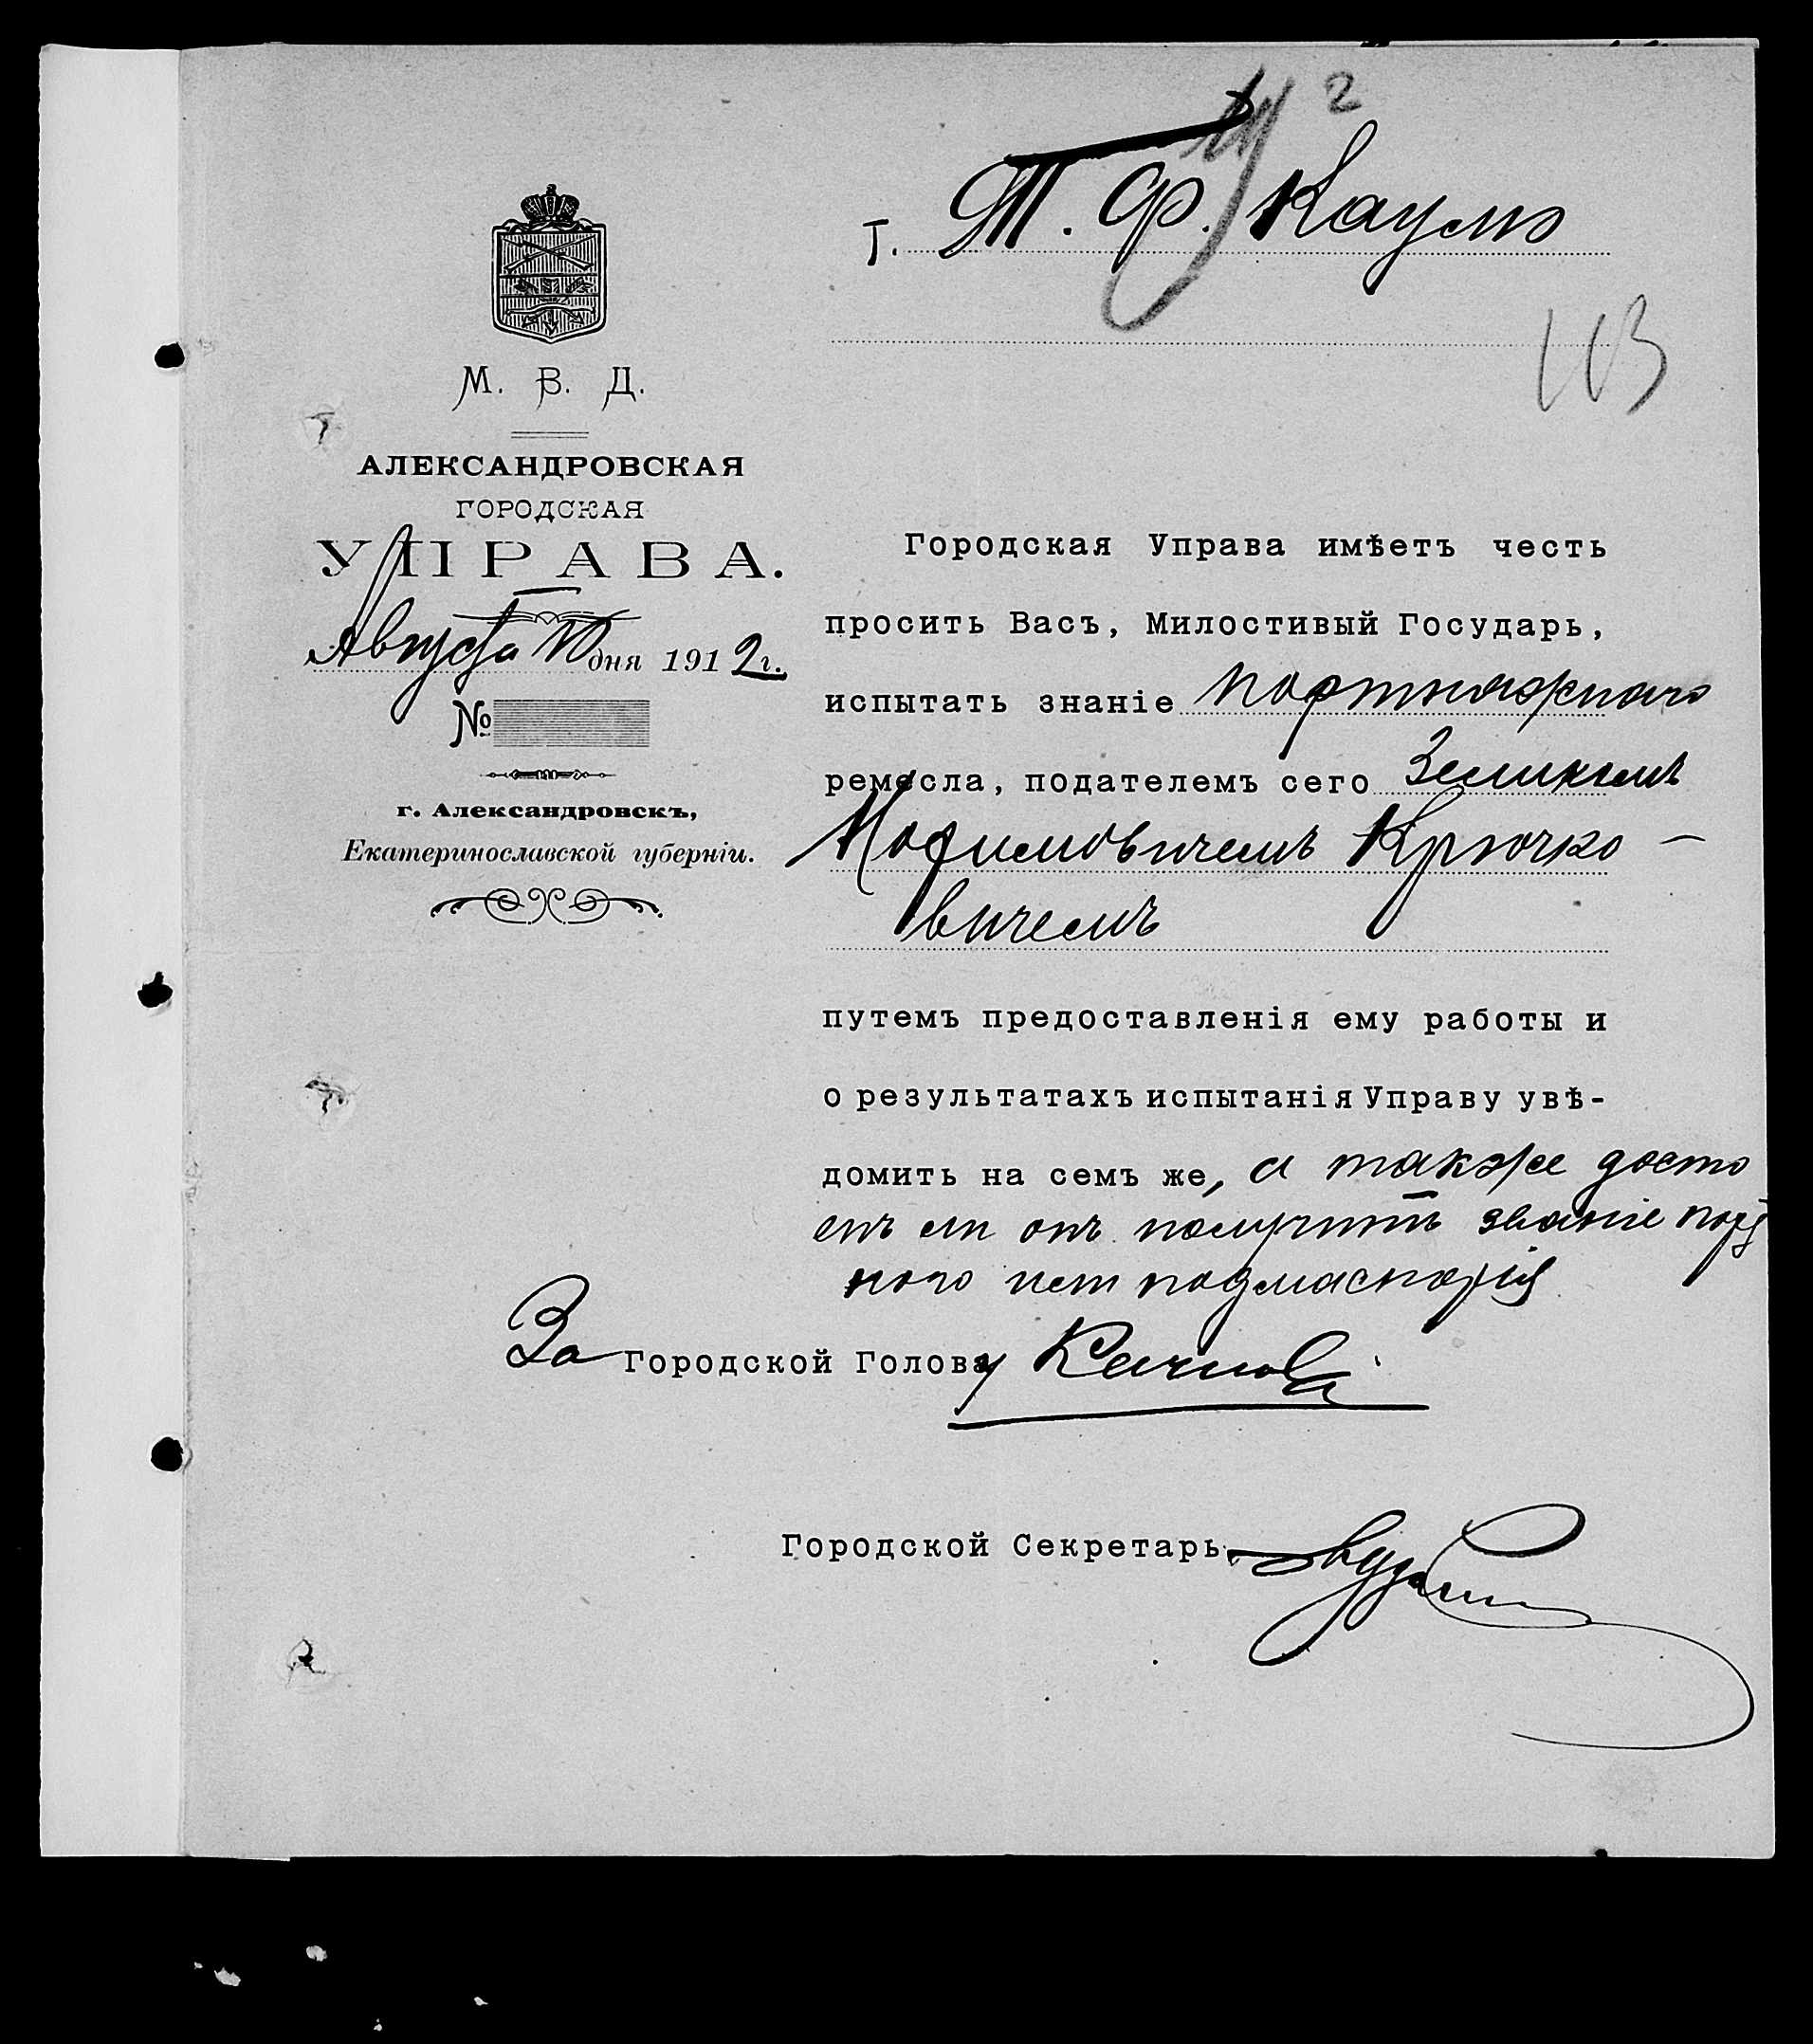 2
Г. Т. Ф. Каумъ
163
М. В. Д.
АЛЕКСАНДРОВСКАЯ
ГОРОДСКАЯ
УПРАВА.
Августа 10 дня 1912 г.
№
г. Александровскъ,
Екатеринославской губерніи.
Городская Управа имѣетъ честь
просить Васъ, Милостивый Государь,
испытать знаніе портняжнаго
ремесла, подателемъ сего Зеликомъ
Крючко-
вичемъ
путемъ предоставленія ему работы и
о результатахъ испытанія Управу увѣ-
домить на семъ же, а также досто
енъ ли онъ получить званіе порт
ного подмастерія
За Городской Голову
Городской Секретарь